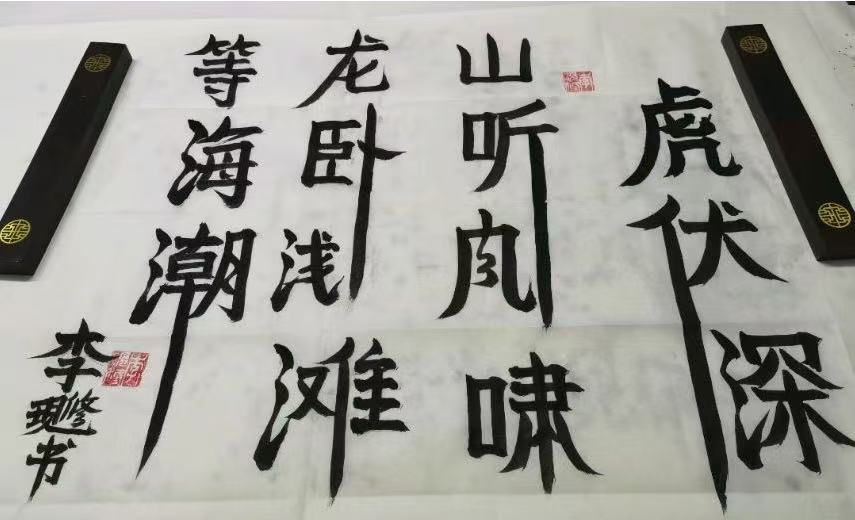 虎伏深
山听风啸
龙卧浅滩
等海潮
李修现书